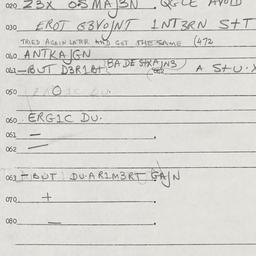 020 23X OSMAJ3N . QGCE AVOID
030 EROT G3VOJNT 1NT3RN S+T
TRIED AGAIN LATER AND GOT THE SAME (472
040 ANTKAJGN
041 -BUT D3R1BT (BA DE STXAJN3) 062 A S+U.X
050 O
060 ERG1C DU.
061 — .
062 —
063 -BUT DU-AR1M3RT GAJN
070 + .
080 — .